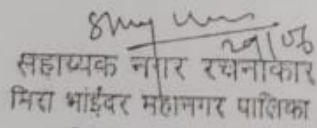 सहाय्यक नगर रचनाकार
मिरा भाईंदर महानगर पालिका